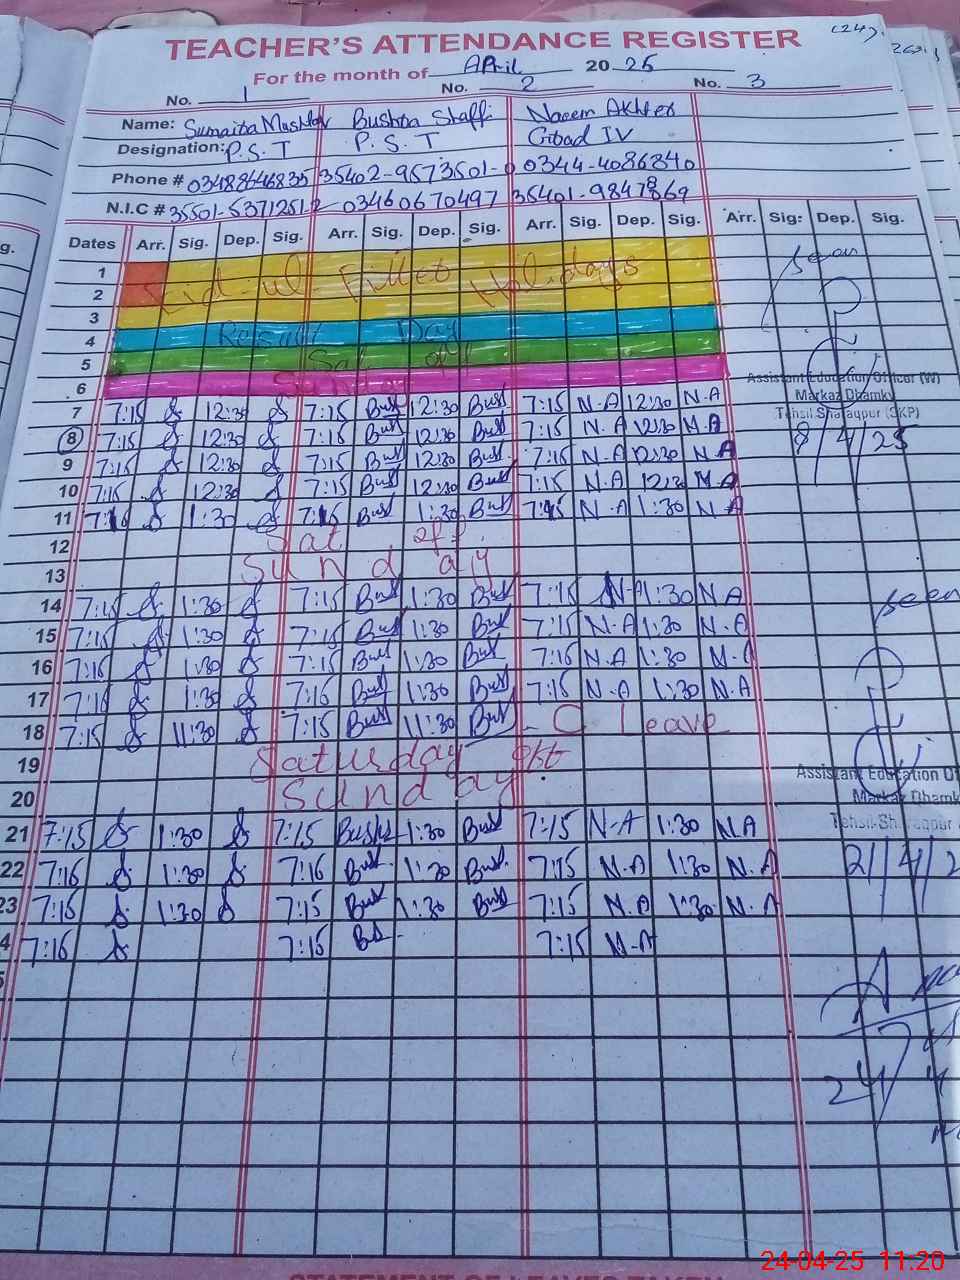 (24)
TEACHER'S ATTENDANCE REGISTER
For the month of April 2025
No. 1 No. 2 No. 3
Name: Sumaira Mushtaq Bushra Shaffi Naeem Akhter
Designation: P.S.T P.S.T Gibad IV
Phone # 03488646835 35402-9573501-0 0344-4086840
N.I.C # 35501-5371251-2 03460670497 35401-9847869
Dates Arr. Sig. Dep. Sig. Arr. Sig. Dep. Sig. Arr. Sig. Dep. Sig. Arr. Sig: Dep. Sig.
1 Eid-ul-Fitter Holidays
2
3
4 Result Day
5 Sat off
6 Sunday
7 7:15 12:30 7:15 But 12:30 But 7:15 N.A 12:30 N.A
8 7:15 12:30 7:15 But 12:30 But 7:15 N.A 12:30 N.A
9 7:15 12:30 7:15 But 12:30 But 7:15 N.A 12:30 N.A
10 7:15 12:30 7:15 But 12:30 But 7:15 N.A 12:30 N.A
11 7:16 1:30 7:15 But 1:30 But 7:15 N.A 1:30 N.A
12 Sat off
13 Sunday
14 7:15 1:30 7:15 But 1:30 But 7:15 N-A 1:30 N.A
15 7:15 1:30 7:15 But 1:30 But 7:15 N.A 1:30 N.A
16 7:16 1:30 7:15 But 1:30 But 7:16 N.A 1:30 N.A
17 7:16 1:30 7:16 But 1:30 But 7:15 N.A 1:30 N.A
18 7:15 11:30 7:15 But 11:30 But C Leave
19 Saturday off
20 Sunday
21 7:15 1:30 7:15 Bushr 1:30 But 7:15 N-A 1:30 N.A
22 7:16 1:30 7:16 But 1:30 But 7:15 N.A 1:30 N.A
23 7:15 1:30 7:15 But 1:30 But 7:15 N.A 1:30 N.A
4 7:16 7:15 7:15 N-A
seen
Assistant Education Officer (W)
Markaz Dhamke
Tehsil Sharaqpur (SKP)
8/4/25
seen
Assistant Education O
Markaz Dhamk
Tehsil Sharaqpur
21/4/2
24
24-04-25 11:20
STATEMENT OF LEAVES TAKEN